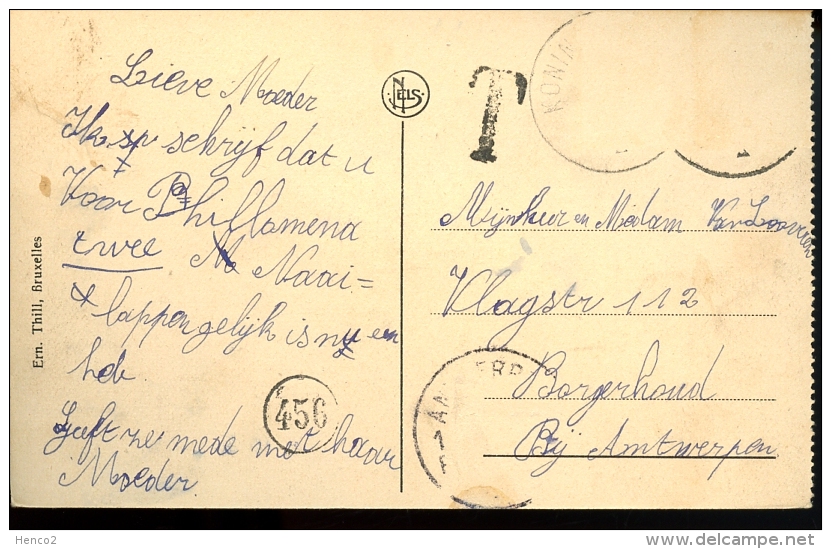 Lieve Moeder
Ik schrijf dat u
Voor Phillomena
twee Naai=
lappen gelijk is ny een
heb
Geeft ze mede met haar
Moeder
Ern. Thill, Bruxelles
NELS
T
KONIN
Mijnheer en Madam Van Looveren
Klagstr 112
Borgerhoud
Bij Antwerpen
456
ANTWERP
Henco2
www.delcampe.net